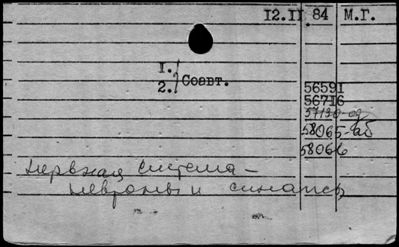 12.II.84 М.Г.
1.
2. Соавт.
56591
56716
57190-од
58065-аб
58066
нервная система -
невроны и синапсы